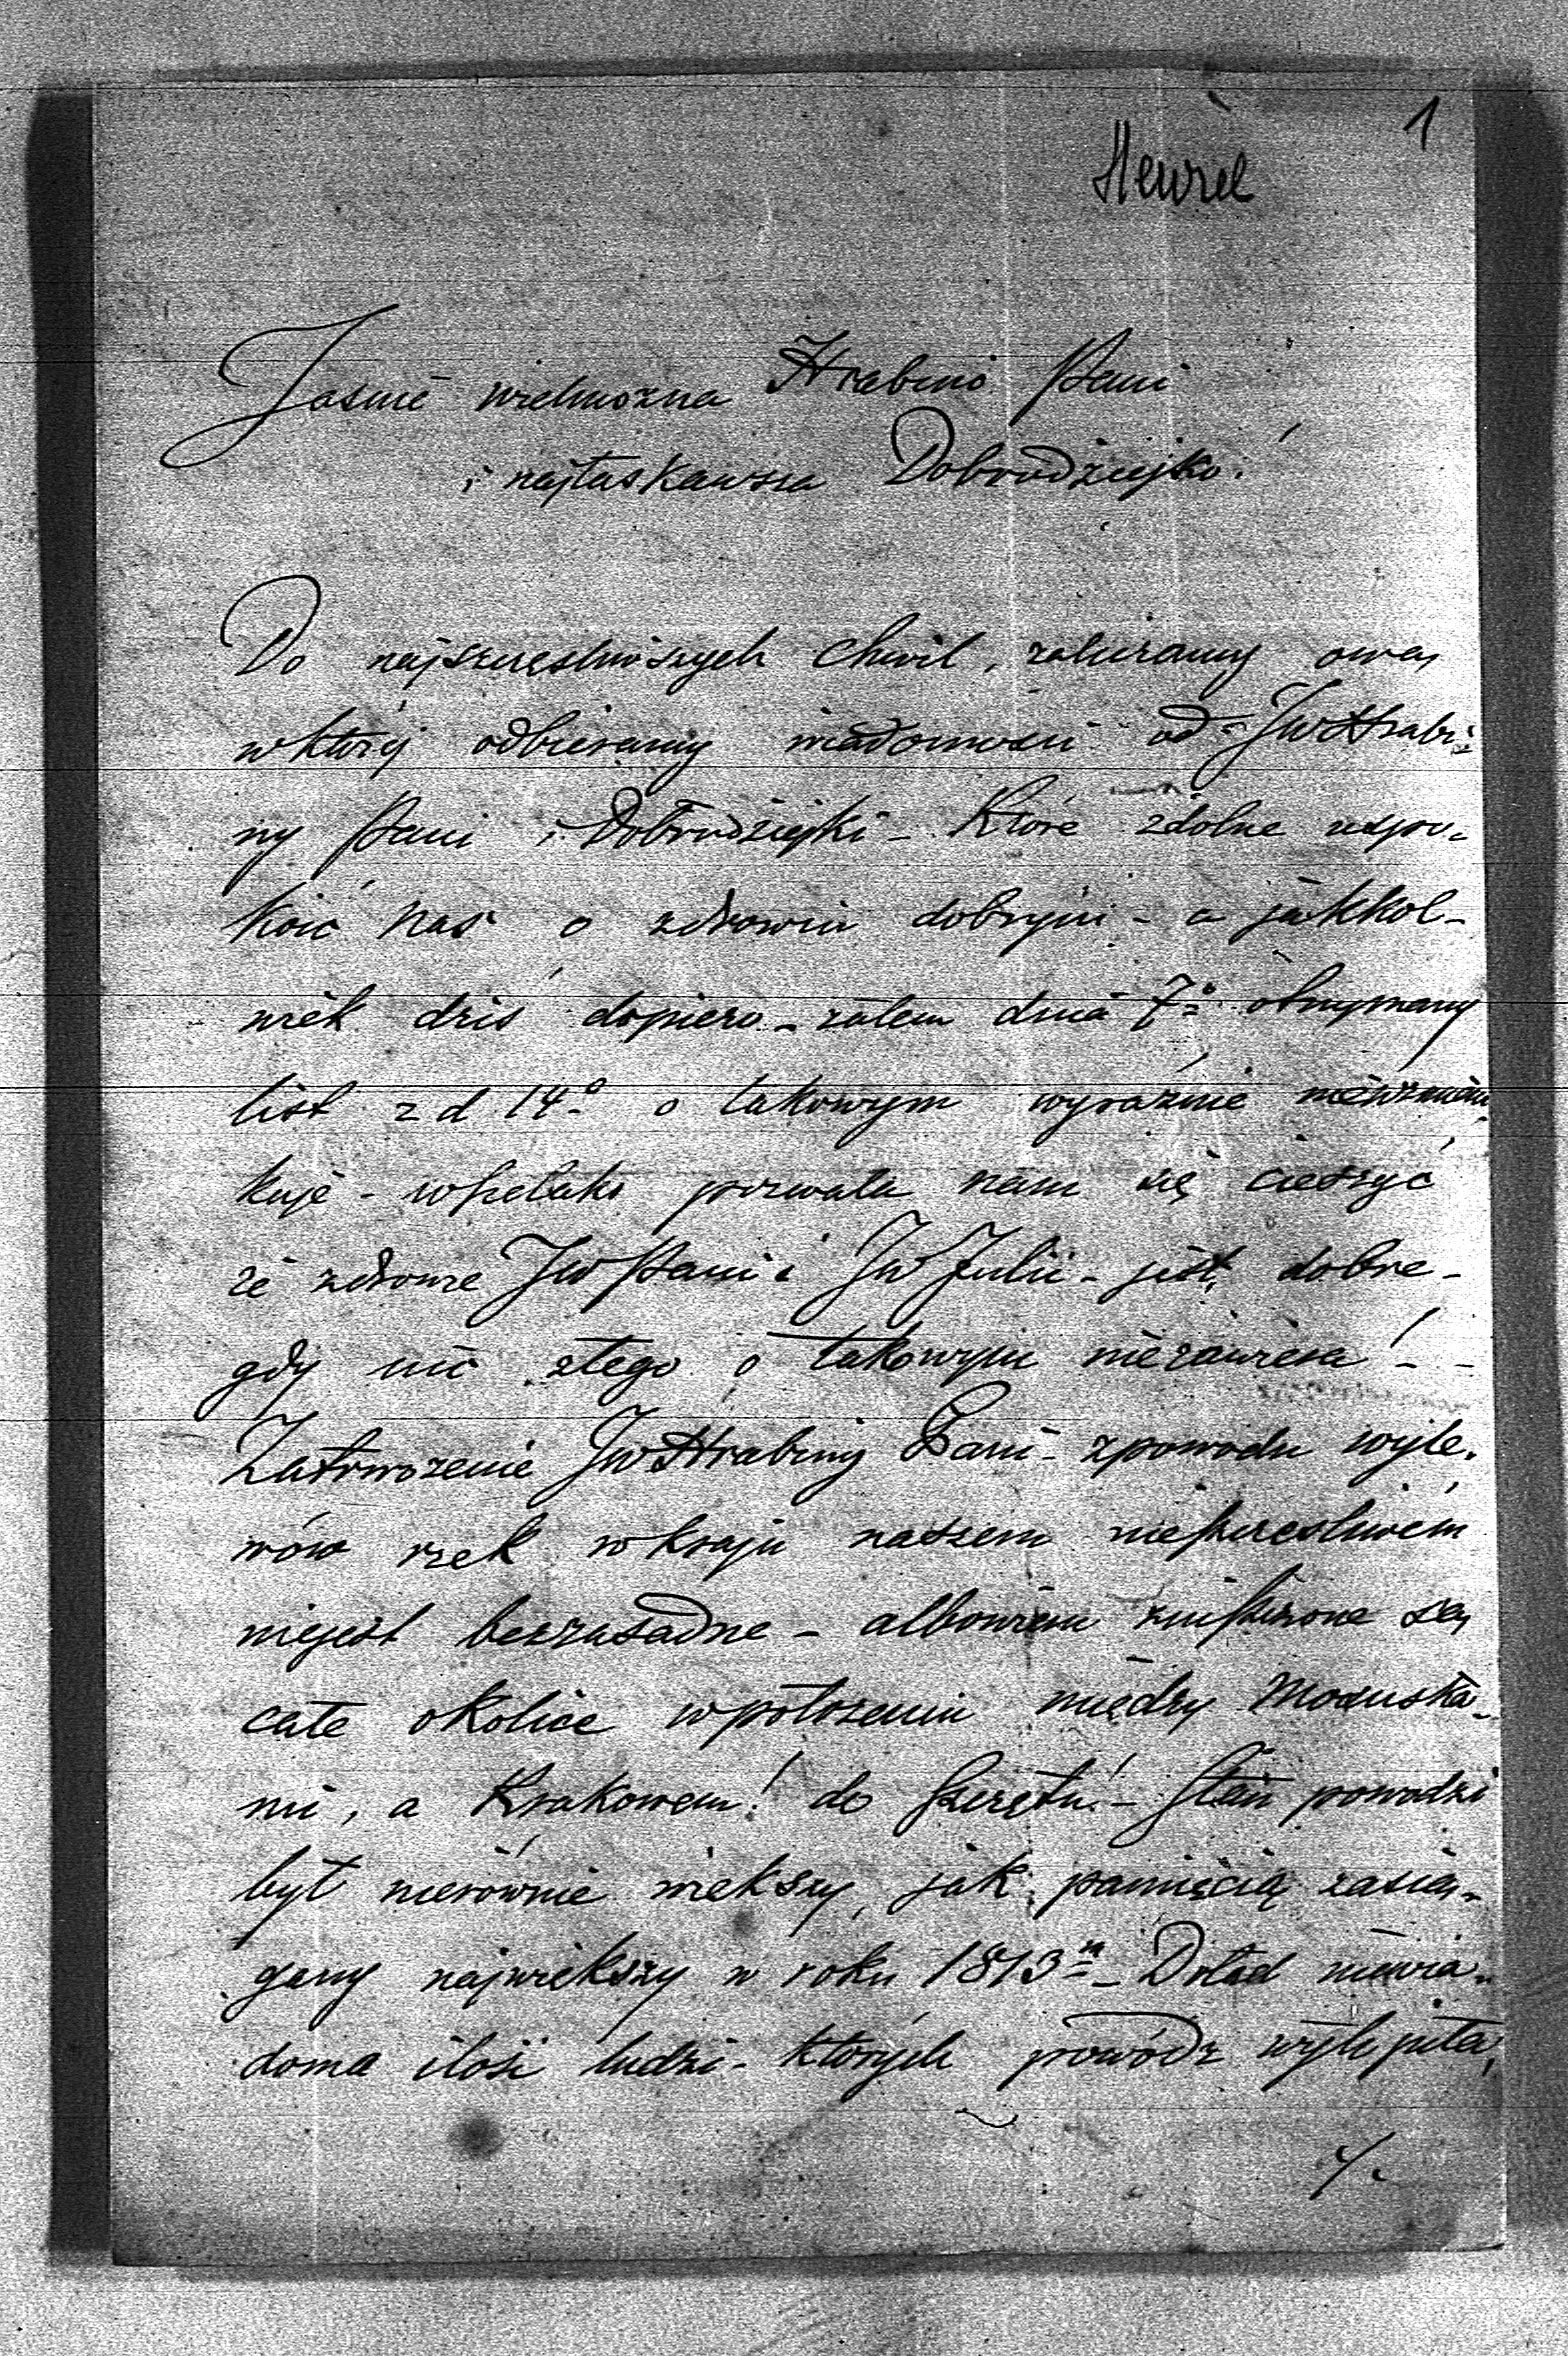 1
Jaśnie wielmożna Hrabino Pani
i najłaskawsza Dobrodziejko!
Do najszczęsliwszych chwil, zaliczamy ową
wktórej odbieramy wiadomosci od JWHrabi-
ny Pani i Dobrodziejki - które zdolne uspo-
koić nas o zdrowiu dobrym - a jakkol-
wiek dziś dopiero - zatem dnia 7º otrzymany
list z d 14º o takowym wyraźnie
kuje - wszelako pozwala nam się cieszyć
że zdrowie JW Pani i JW Julii - jest dobre -
gdy nic złego o takowym niezawiera! -
Zatrwożenie JWHrabiny Pani - zpowodu wyle-
wów rzek wkraju naszem nieszczesliwém
niejest bezzasadne - albowiem zniszczone są
całe okolice wpołożeniu między
mi, a Krakowem! do - Stan powodzi
był nierównie wiekszy, jak pamięcią zasią-
gany najwiekszy w roku 1813 - Dotąd niewia-
doma ilość ludzi - których powódz wytępiła,